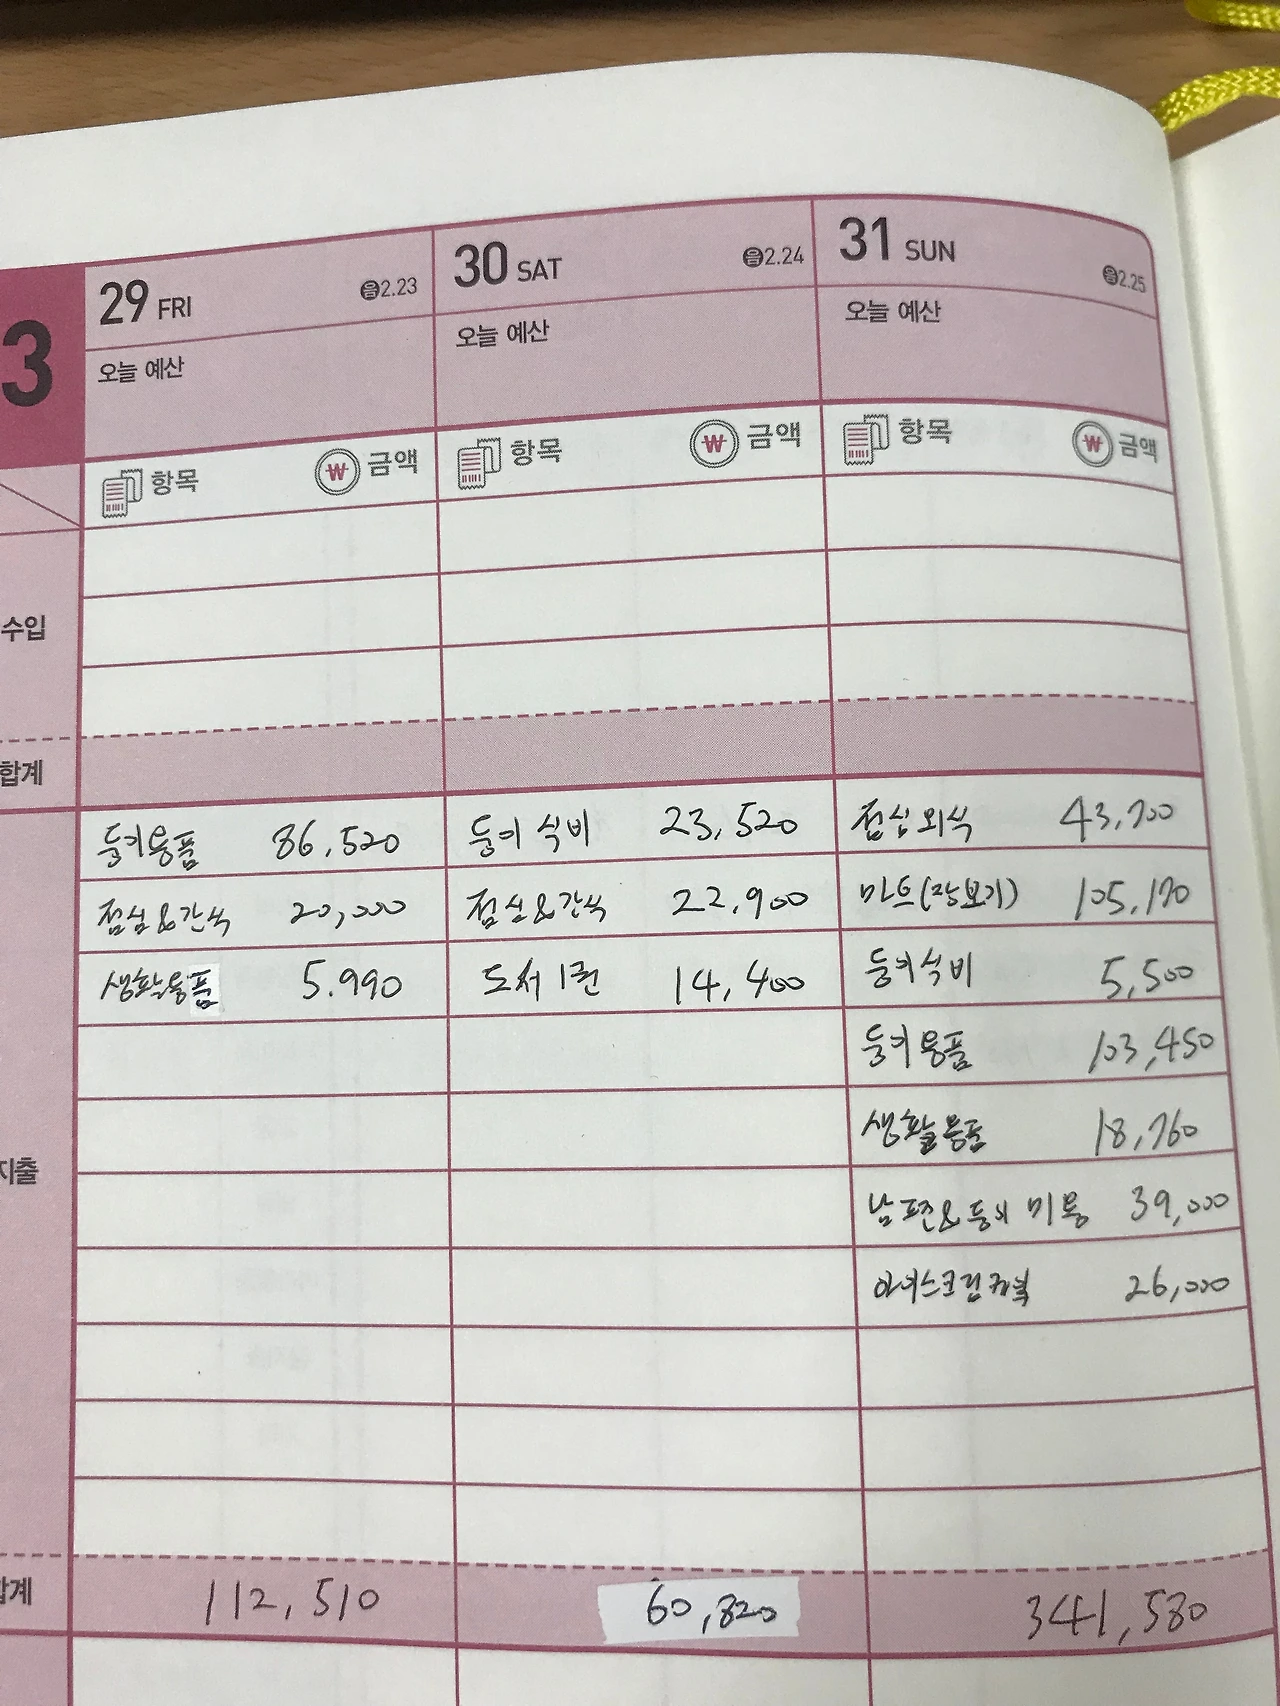 3
29 FRI 음2.23
오늘 예산
항목 금액
30 SAT 음2.24
오늘 예산
항목 금액
31 SUN 음2.25
오늘 예산
항목 금액
수입
합계
지출
둥이용품 86,520
점심&간식 20,000
생활용품 5.990
둥이 식비 23,520
점심&간식 22,900
도서 1권 14,400
점심외식 43,700
마트(장보기) 105,170
둥이식비 5,500
둥이용품 103,450
생활용품 18,760
남편&둥이 미용 39,000
아이스크림 26,000
합계
112,510
60,820
341,580